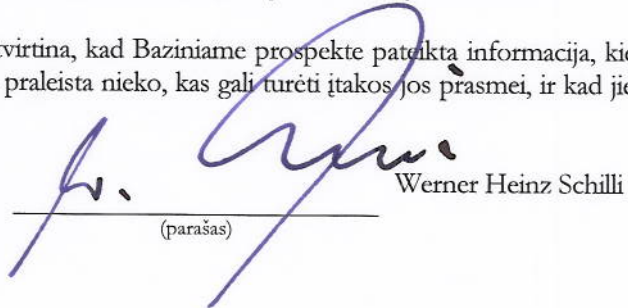 virtina, kad Baziniame prospekte pateikta informacija, kie
praleista nieko, kas gali turėti įtakos jos prasmei, ir kad jie
Werner Heinz Schilli
(parašas)